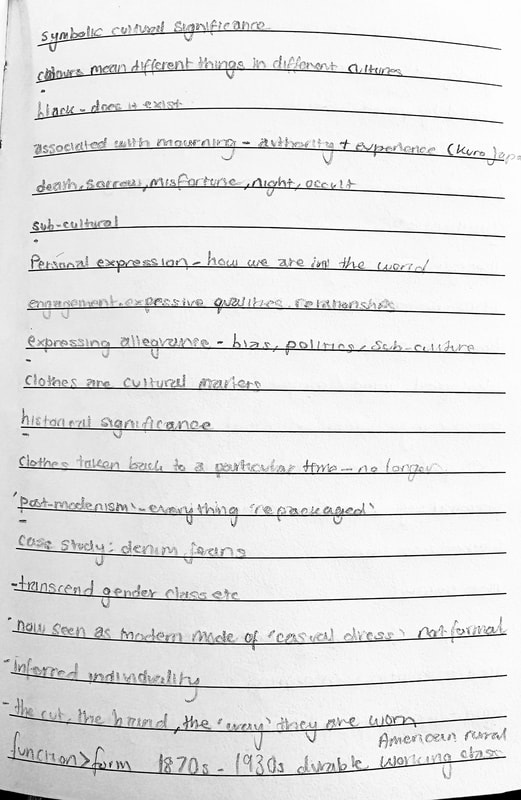 symbolic cultural significance
colours mean different things in different cultures
black - does it exist
associated with mourning - authority + experience (Kuro Japa
death, sorrow, misfortune, night, occult
sub-cultural
Personal expression - how we are in the world
engagement. expessive qualities. relationships
expressing allegiance - bias, politics, sub-culture
clothes are cultural markers
historical significance
clothes taken back to a particular time - no longer
'post-modenism' - everything 'repackaged'
case study: denim jeans
- transcend gender class etc
- now seen as modern mode of 'casual dress' not formal
- inferred individuality
- the cut, the brand, the 'way' they are worn
American rural
function > form 1870s - 1930s durable working class